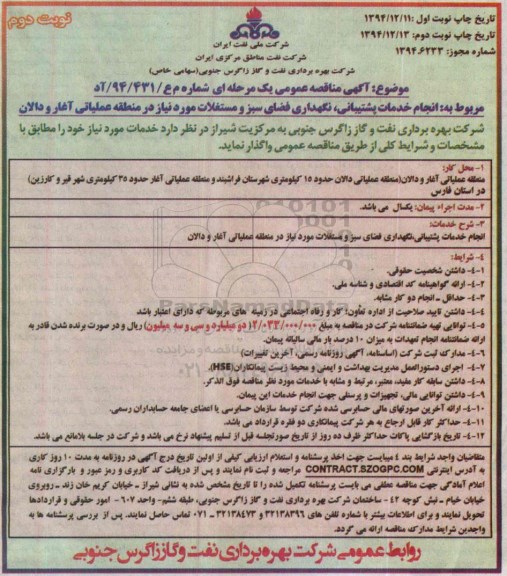 تاریخ چاپ نوبت اول :۱۳۹۴/۱۲/۱۱
تاریخ چاپ نوبت دوم: ۱۳۹۴/۱۲/۱۳
شماره مجوز: ۱۳۹۴.۶۲۳۳
نوبت دوم
شرکت ملی نفت ایران
شرکت نفت مناطق مرکزی ایران
شرکت بهره برداری نفت و گاز زاگرس جنوبی(سهامی خاص)
موضوع: آگهی مناقصه عمومی یک مرحله ای شماره م ع/۹۴/۴۳۱/آد
مربوط به: انجام خدمات پشتیبانی، نگهداری فضای سبز و مستغلات مورد نیاز در منطقه عملیاتی آغار و دالان
شرکت بهره برداری نفت و گاز زاگرس جنوبی به مرکزیت شیراز در نظر دارد خدمات مورد نیاز خود را مطابق با
مشخصات و شرایط کلی از طریق مناقصه عمومی واگذار نماید.
۱- محل کار:
منطقه عملیاتی آغار و دالان(منطقه عملیاتی دالان حدود ۱۵ کیلومتری شهرستان فراشبند و منطقه عملیاتی آغار حدود ۳۵ کیلومتری شهر قیر و کارزین)
در استان فارس
۲- مدت اجراء پیمان: یکسال می باشد.
۳- شرح خدمات:
انجام خدمات پشتیبانی،نگهداری فضای سبز و مستغلات مورد نیاز در منطقه عملیاتی آغار و دالان
۴- شرایط:
۴-۱- داشتن شخصیت حقوقی.
۴-۲- ارائه گواهینامه کد اقتصادی و شناسه ملی.
۴-۳- حداقل، انجام دو کار مشابه.
۴-۴- داشتن تایید صلاحیت از اداره تعاون؛ کار و رفاه اجتماعی در زمینه های مربوطه که دارای اعتبار باشد
۴-۵- توانایی تهیه ضمانتنامه شرکت در مناقصه به مبلغ ۲/۰۳۳/۰۰۰/۰۰۰ (دو میلیارد و سی و سه میلیون) ریال و در صورت برنده شدن قادر به
ارائه ضمانتنامه انجام تعهدات به میزان ۱۰ درصد بار مالی سالیانه پیمان.
۴-۶- مدارک ثبت شرکت (اساسنامه، آگهی روزنامه رسمی، آخرین تغییرات)
۴-۷- اجرای دستورالعمل مدیریت بهداشت و ایمنی و محیط زیست پیمانکاران(HSE).
۴-۸- داشتن سابقه کار مفید، معتبر، مرتبط و مشابه با خدمات مورد نظر مناقصه فوق الذکر.
۴-۹- داشتن توانایی مالی، تجهیزات و پرسنلی جهت انجام خدمات این پیمان.
۴-۱۰- ارائه آخرین صورتهای مالی حسابرسی شده شرکت توسط سازمان حسابرسی یا اعضای جامعه حسابداران رسمی.
۴-۱۱- حداکثر کار قابل ارجاع به هر شرکت پیمانکاری دو فقره قرارداد می باشد.
۴-۱۲- تاریخ بازگشایی پاکات حداکثر ظرف ده روز از تاریخ صورتجلسه قبل از تسلیم پیشنهاد نرخ می باشد و شرکت در جلسه بلامانع می باشد.
متقاضیان واجد شرایط بند ۴ میبایست جهت اخذ پرسشنامه و استعلام ارزیابی کیفی از اولین تاریخ درج آگهی در روزنامه به مدت ۱۰ روز کاری
به آدرس اینترنتی CONTRACT.SZOGPC.COM مراجعه و ثبت نام نمایند و پس از دریافت کد کاربری و رمز عبور و بارگزاری نامه
اعلام آمادگی جهت مناقصه نطقی می بایست پرسشنامه تکمیل شده را تا تاریخ مشخص شده به نشانی شیراز - خیابان کریم خان زند - روبروی
خیابان خیام - نبش کوچه ۴۲ - ساختمان شرکت بهره برداری نفت و گاز زاگرس جنوبی، طبقه ششم- واحد ۶۰۷ - امور حقوقی و قراردادها
تحویل نمایند و برای اطلاعات بیشتر با شماره تلفن های ۳۲۱۳۸۳۹۶ و ۳۲۱۳۸۴۷۳ - ۰۷۱ تماس حاصل نمایند. پس از بررسی پرسشنامه ها به
واجدین شرایط مدارک مناقصه ارائه می گردد.
روابط عمومی شرکت بهره برداری نفت و گاز زاگرس جنوبی
ParsNamadData